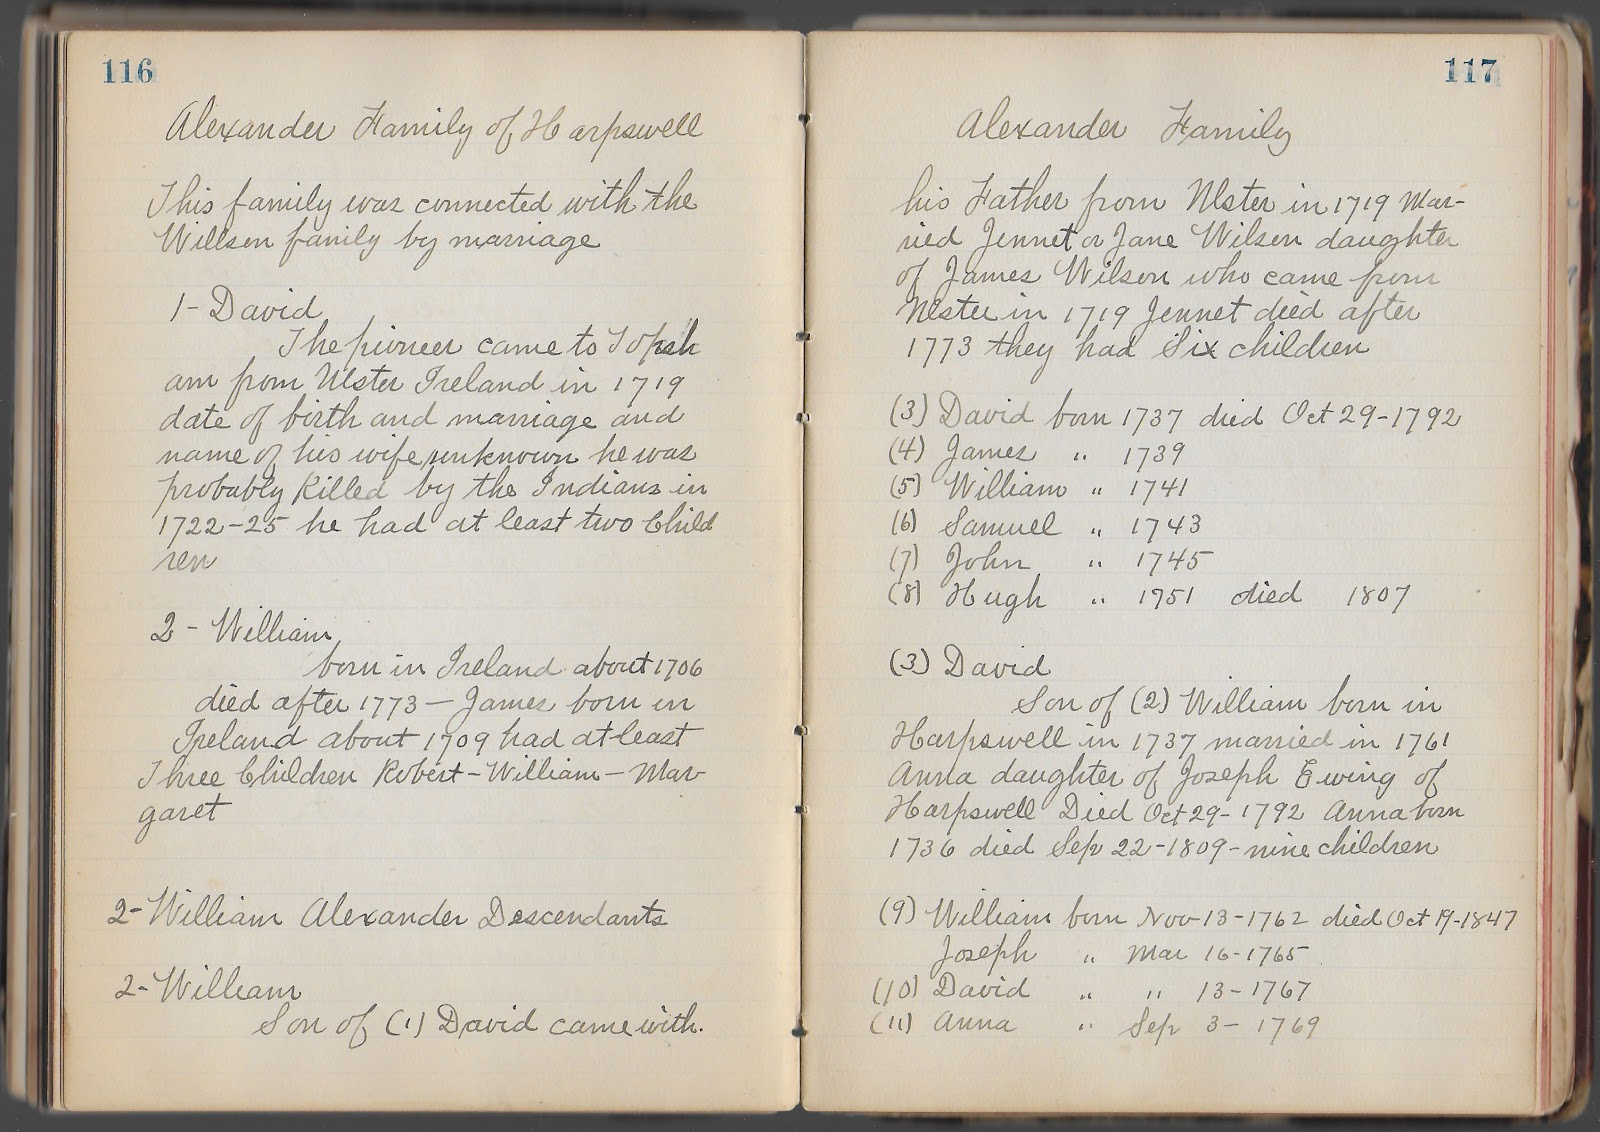 116
Alexander Family of Harpswell
This family was connected with the
Willson family by marriage
1- David
The pioneer came to Topsh
am from Ulster Ireland in 1719
date of birth and marriage and
name of his wife unknown he was
probably Killed by the Indians in
1722-25 he had at least two Child
ren
2- William
born in Ireland about 1706
died after 1773 — James born in
Ireland about 1709 had at least
Three Children Robert - William - Mar-
garet
2- William Alexander Descendants
2- William
Son of (1) David came with.
117
Alexander Family
his Father from Ulster in 1719 Mar-
ried Jennet or Jane Wilson daughter
of James Wilson who came from
Ulster in 1719 Jennet died after
1773 they had Six children
(3) David born 1737 died Oct 29-1792
(4) James " 1739
(5) William " 1741
(6) Samuel " 1743
(7) John " 1745
(8) Hugh " 1751 died 1807
(3) David
Son of (2) William born in
Harpswell in 1737 married in 1761
Anna daughter of Joseph Ewing of
Harpswell Died Oct 29-1792 Anna born
1736 died Sep 22-1809 - nine children
(9) William born Nov-13-1762 died Oct 19-1847
Joseph " Mar 16-1765
(10) David " " 13-1767
(11) Anna " Sep 3-1769